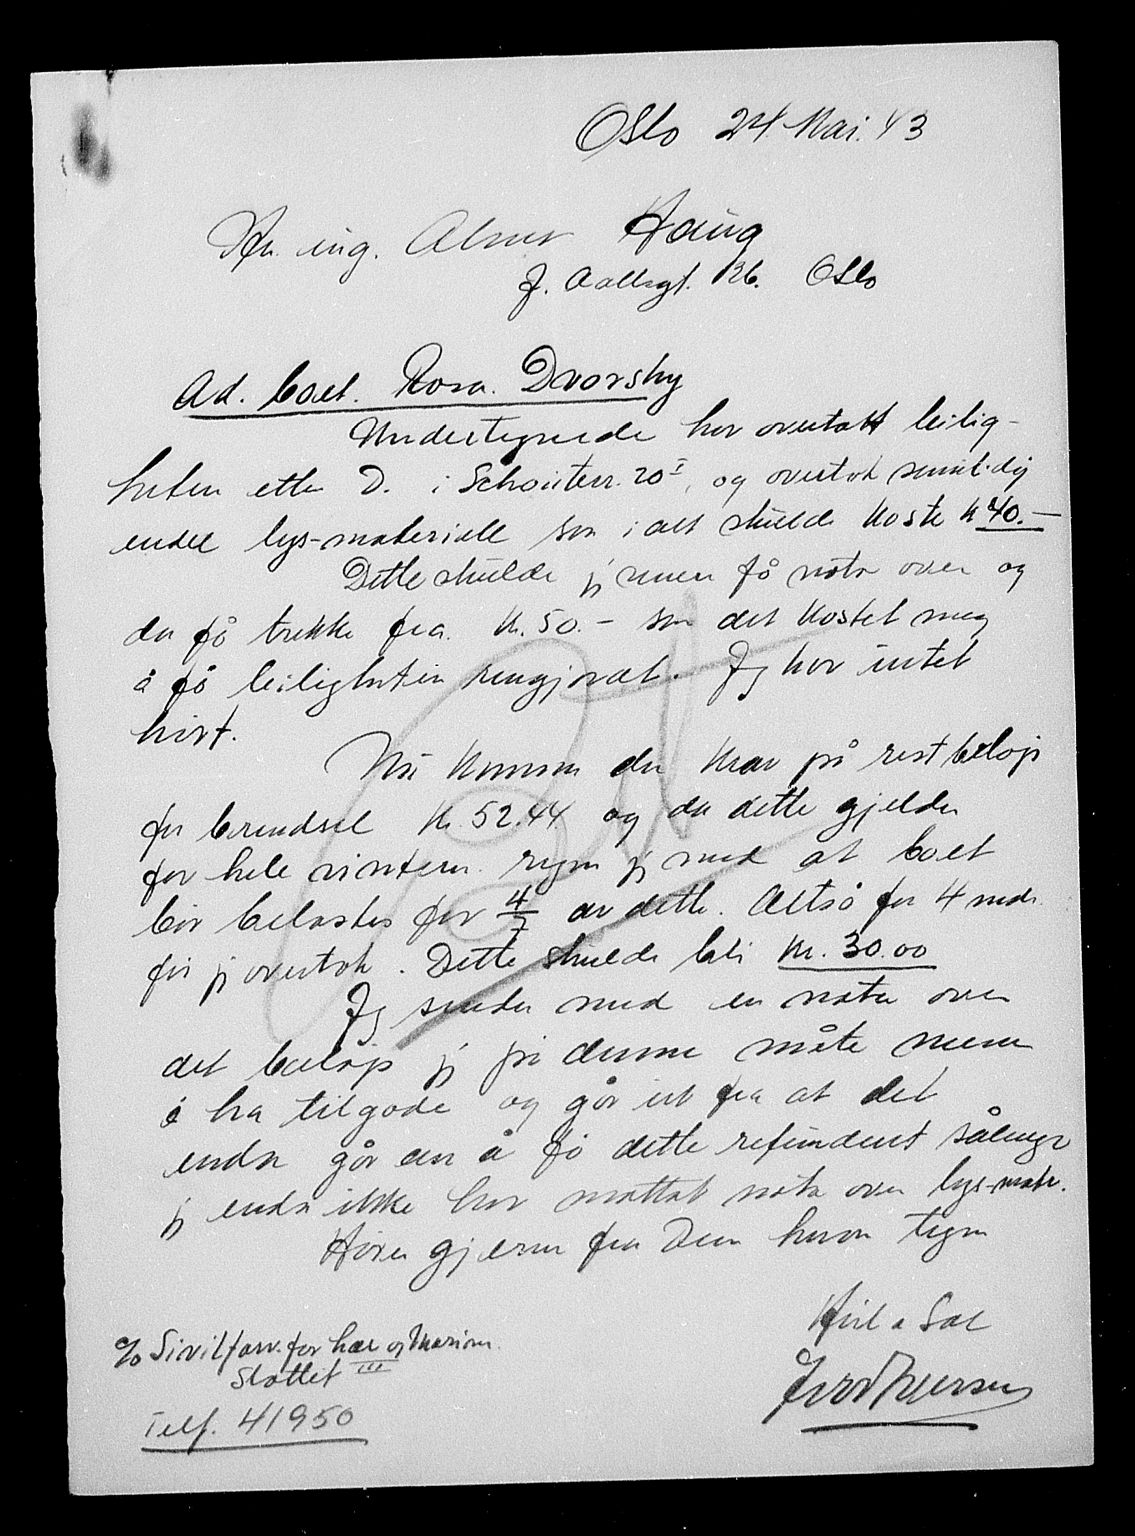 Oslo 24 Mai. 43
Hr. ing. Haug
J. Aallsgt. 26. Oslo
Ad. boet. Rosa. Dvorsky
Undertegnede har overtatt leilig-
heten etter D. i Schouterr. 20 I, og overtok samtidig
endel lys-materiell som i alt skulde koste k 40.-
Dette skulde jeg senere få nota over og
da få trekke fra. kr. 50.- som det kostet meg
å få leiligheten rengjort. Jeg har intet
hørt.
Nu kommer der krav på restbeløp
for brendsel kr. 52.44 og da dette gjelder
for hele vinteren regner jeg med at boet
bør belastes for 4/7 av dette. Altså for 4 mndr.
før jeg overtok. Dette skulde bli kr. 30.00
Jeg sender med en nota over
det beløp jeg på denne måte mener
å ha tilgode og går ut fra at det
enda går an å få dette refundert sålenge
jeg enda ikke har mottat nota over lys-matr.
Hører gjerne fra Dem herom tegner
Heil a Sæl
c/o Sivilforv. for hær og Marinen.
Slottet III
Telf. 41950